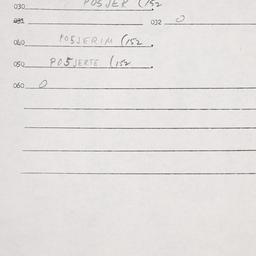 030 POSJER (152
031 032 0
040 POSJERIM (152.
050 POSJERTE (152.
060 0